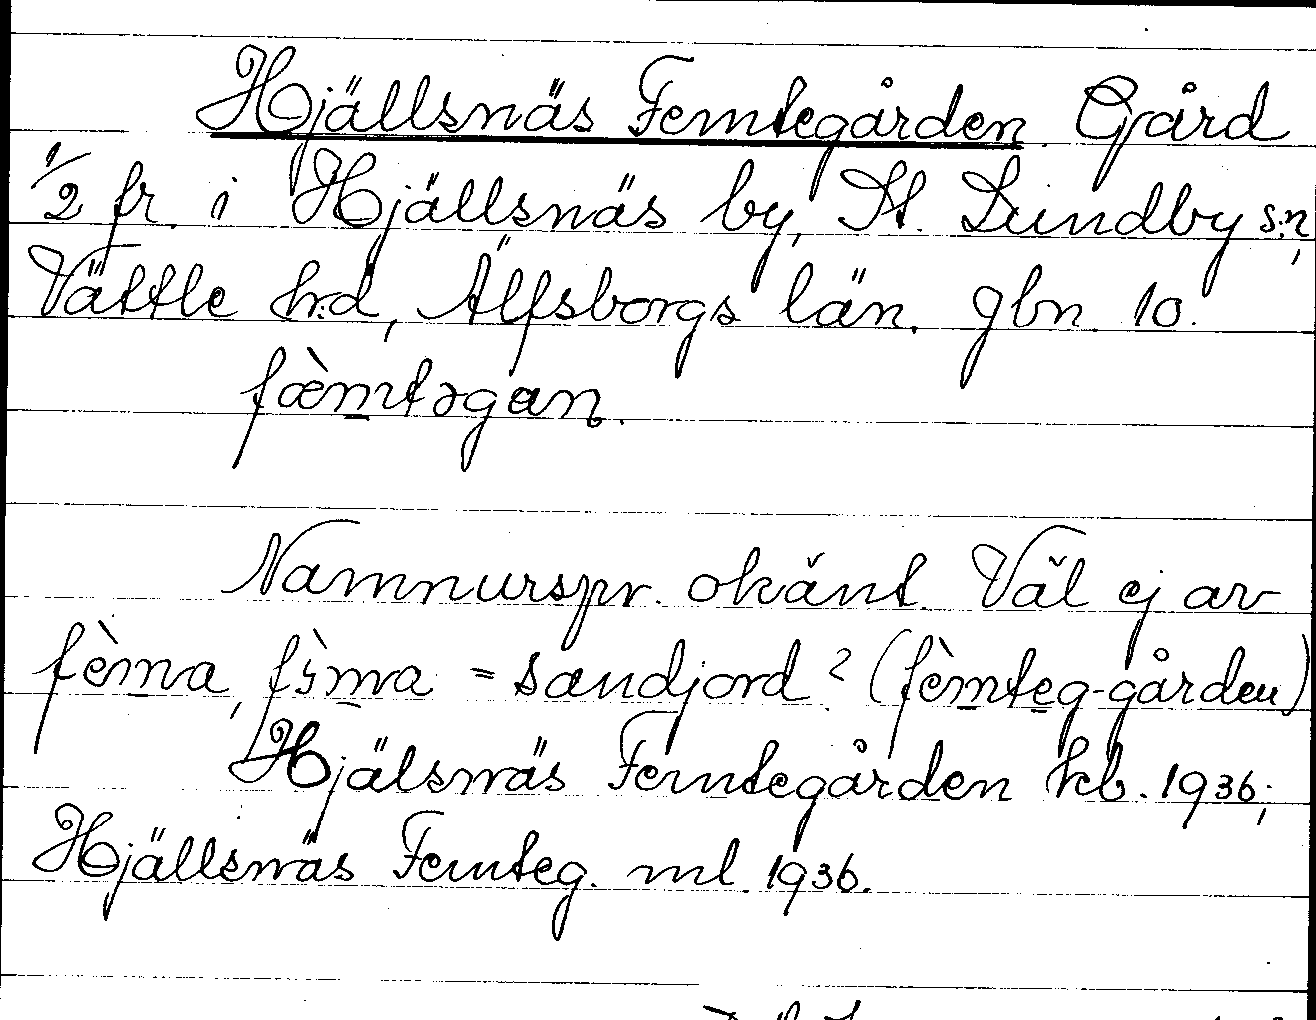 Hjällsnäs Femtegården. Gård
1/2 fr. i Hjällsnäs by, St. Lundby s:n,
Vättle h:d, Älfsborgs län. gbn. 10.
fæ̀mtəgan.
Namnurspr. okänt. Väl ej av
fèma, fìma = sandjord? (fèmteg-gården)
Hjälsnäs Femtegården kb. 1936;
Hjällsnäs Femteg. ml. 1936.